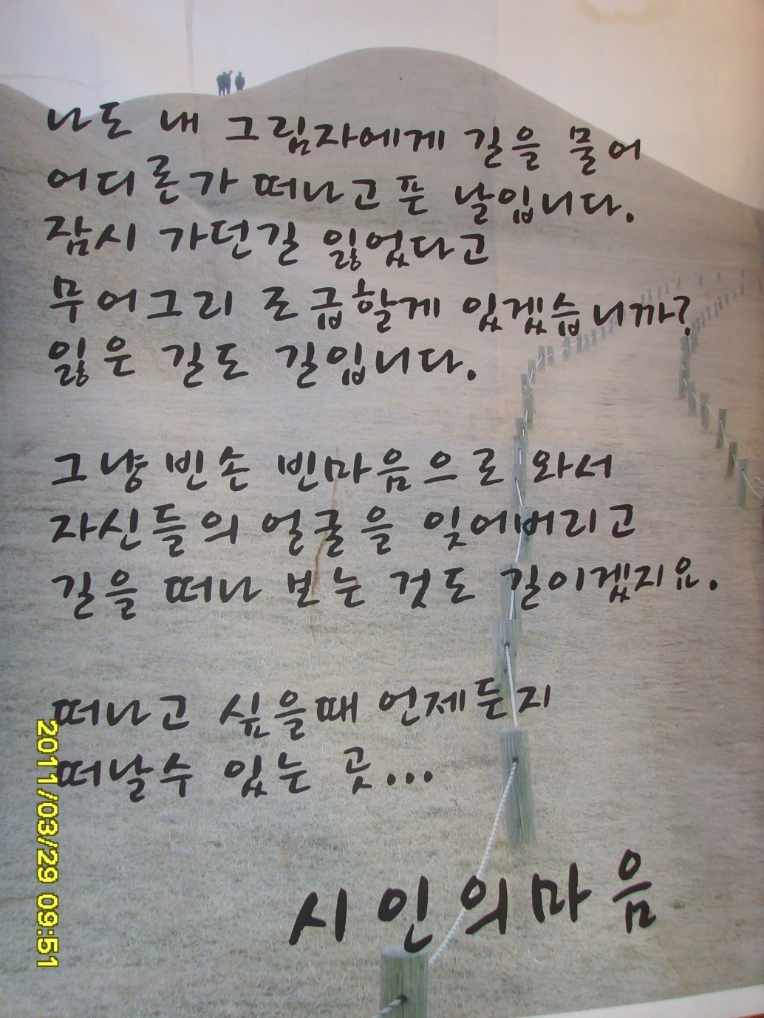 나도 내 그림자에게 길을 물어
어디론가 떠나고픈 날입니다.
잠시 가던길 잃었다고
무어그리 조급할게 있겠습니까?
잃은 길도 길입니다.
그냥 빈손 빈마음으로 와서
자신들의 얼굴을 잊어버리고
길을 떠나 보는 것도 길이겠지요.
떠나고 싶을때 언제든지
떠날수 있는 곳...
시인의마음
2011/03/29 09:51